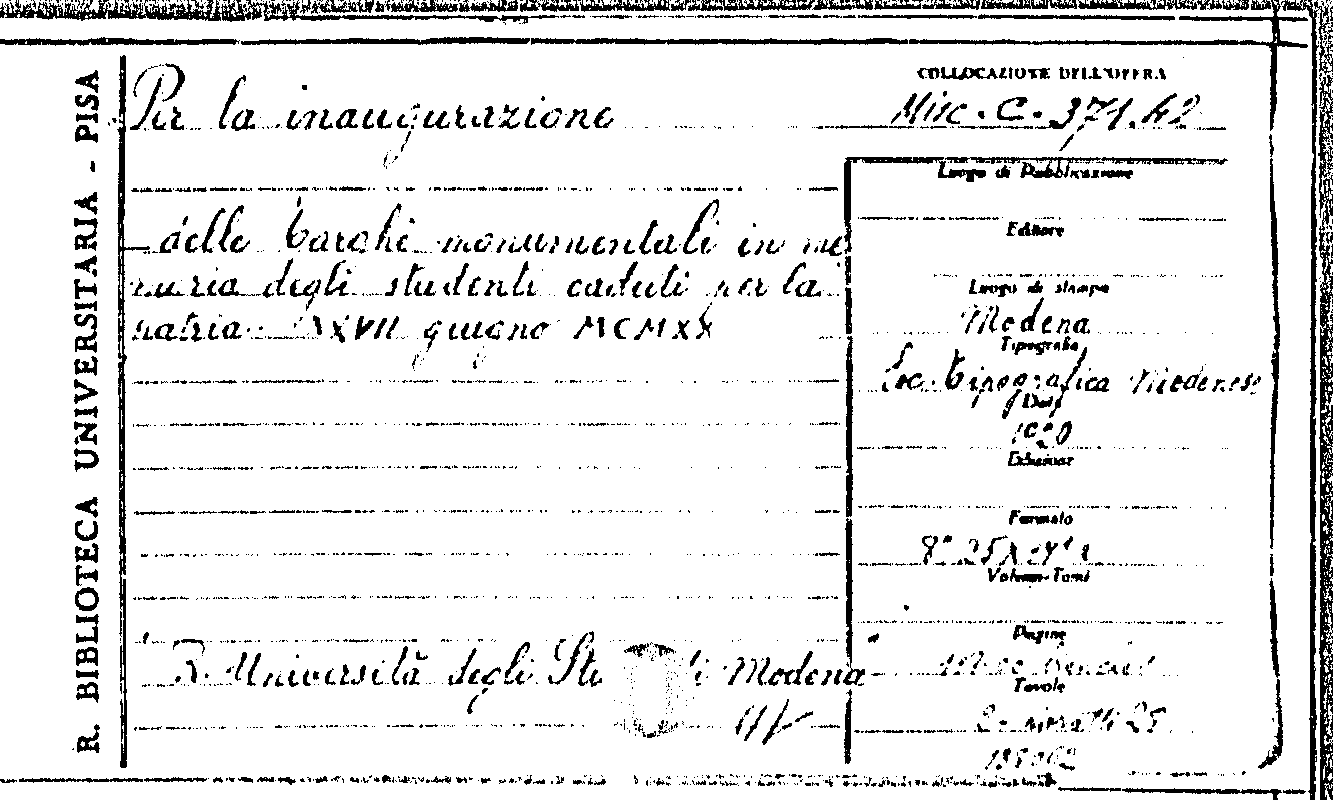 R. BIBLIOTECA UNIVERSITARIA - PISA
Per la inaugurazione
delle targhe monumentali in me
moria degli studenti caduti per la
patria. XXVII giugno MCMXX
" R. Università degli Stu di Modena "
COLLOCAZIONE DELL'OPERA
Misc. C. 371.42
Luogo di Pubblicazione
Editore
Luogo di stampa
Modena
Tipografia
Soc. Tipografica Modenese
Data
1920
Esemplar
Formato
8° 25 x
Volumi-Tomi
Pagine
Tavole
2